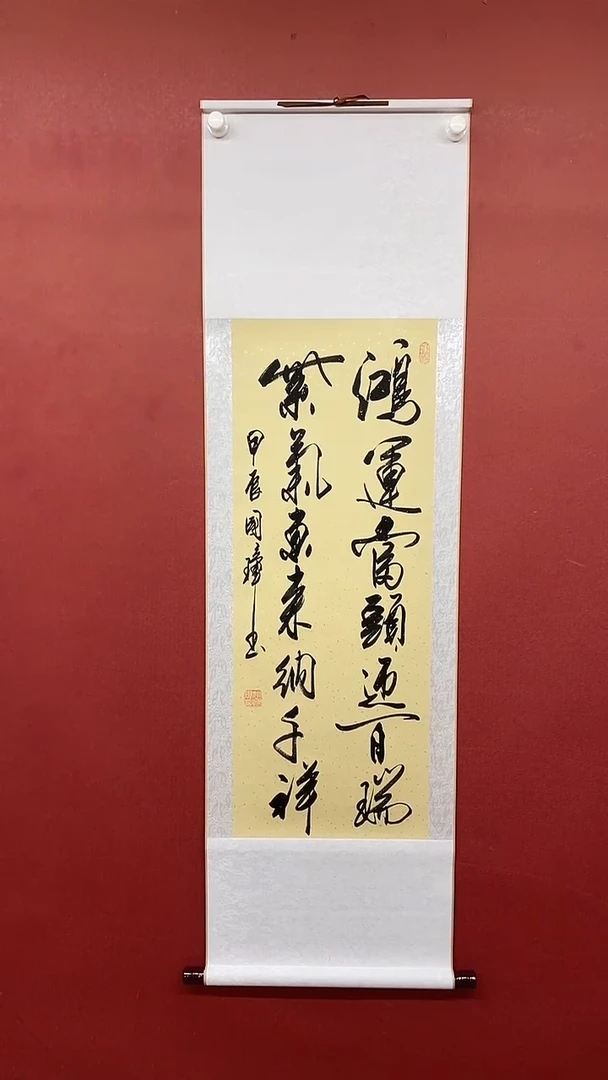 鴻運當頭迎百瑞
紫氣東來納千祥
甲辰國璋書